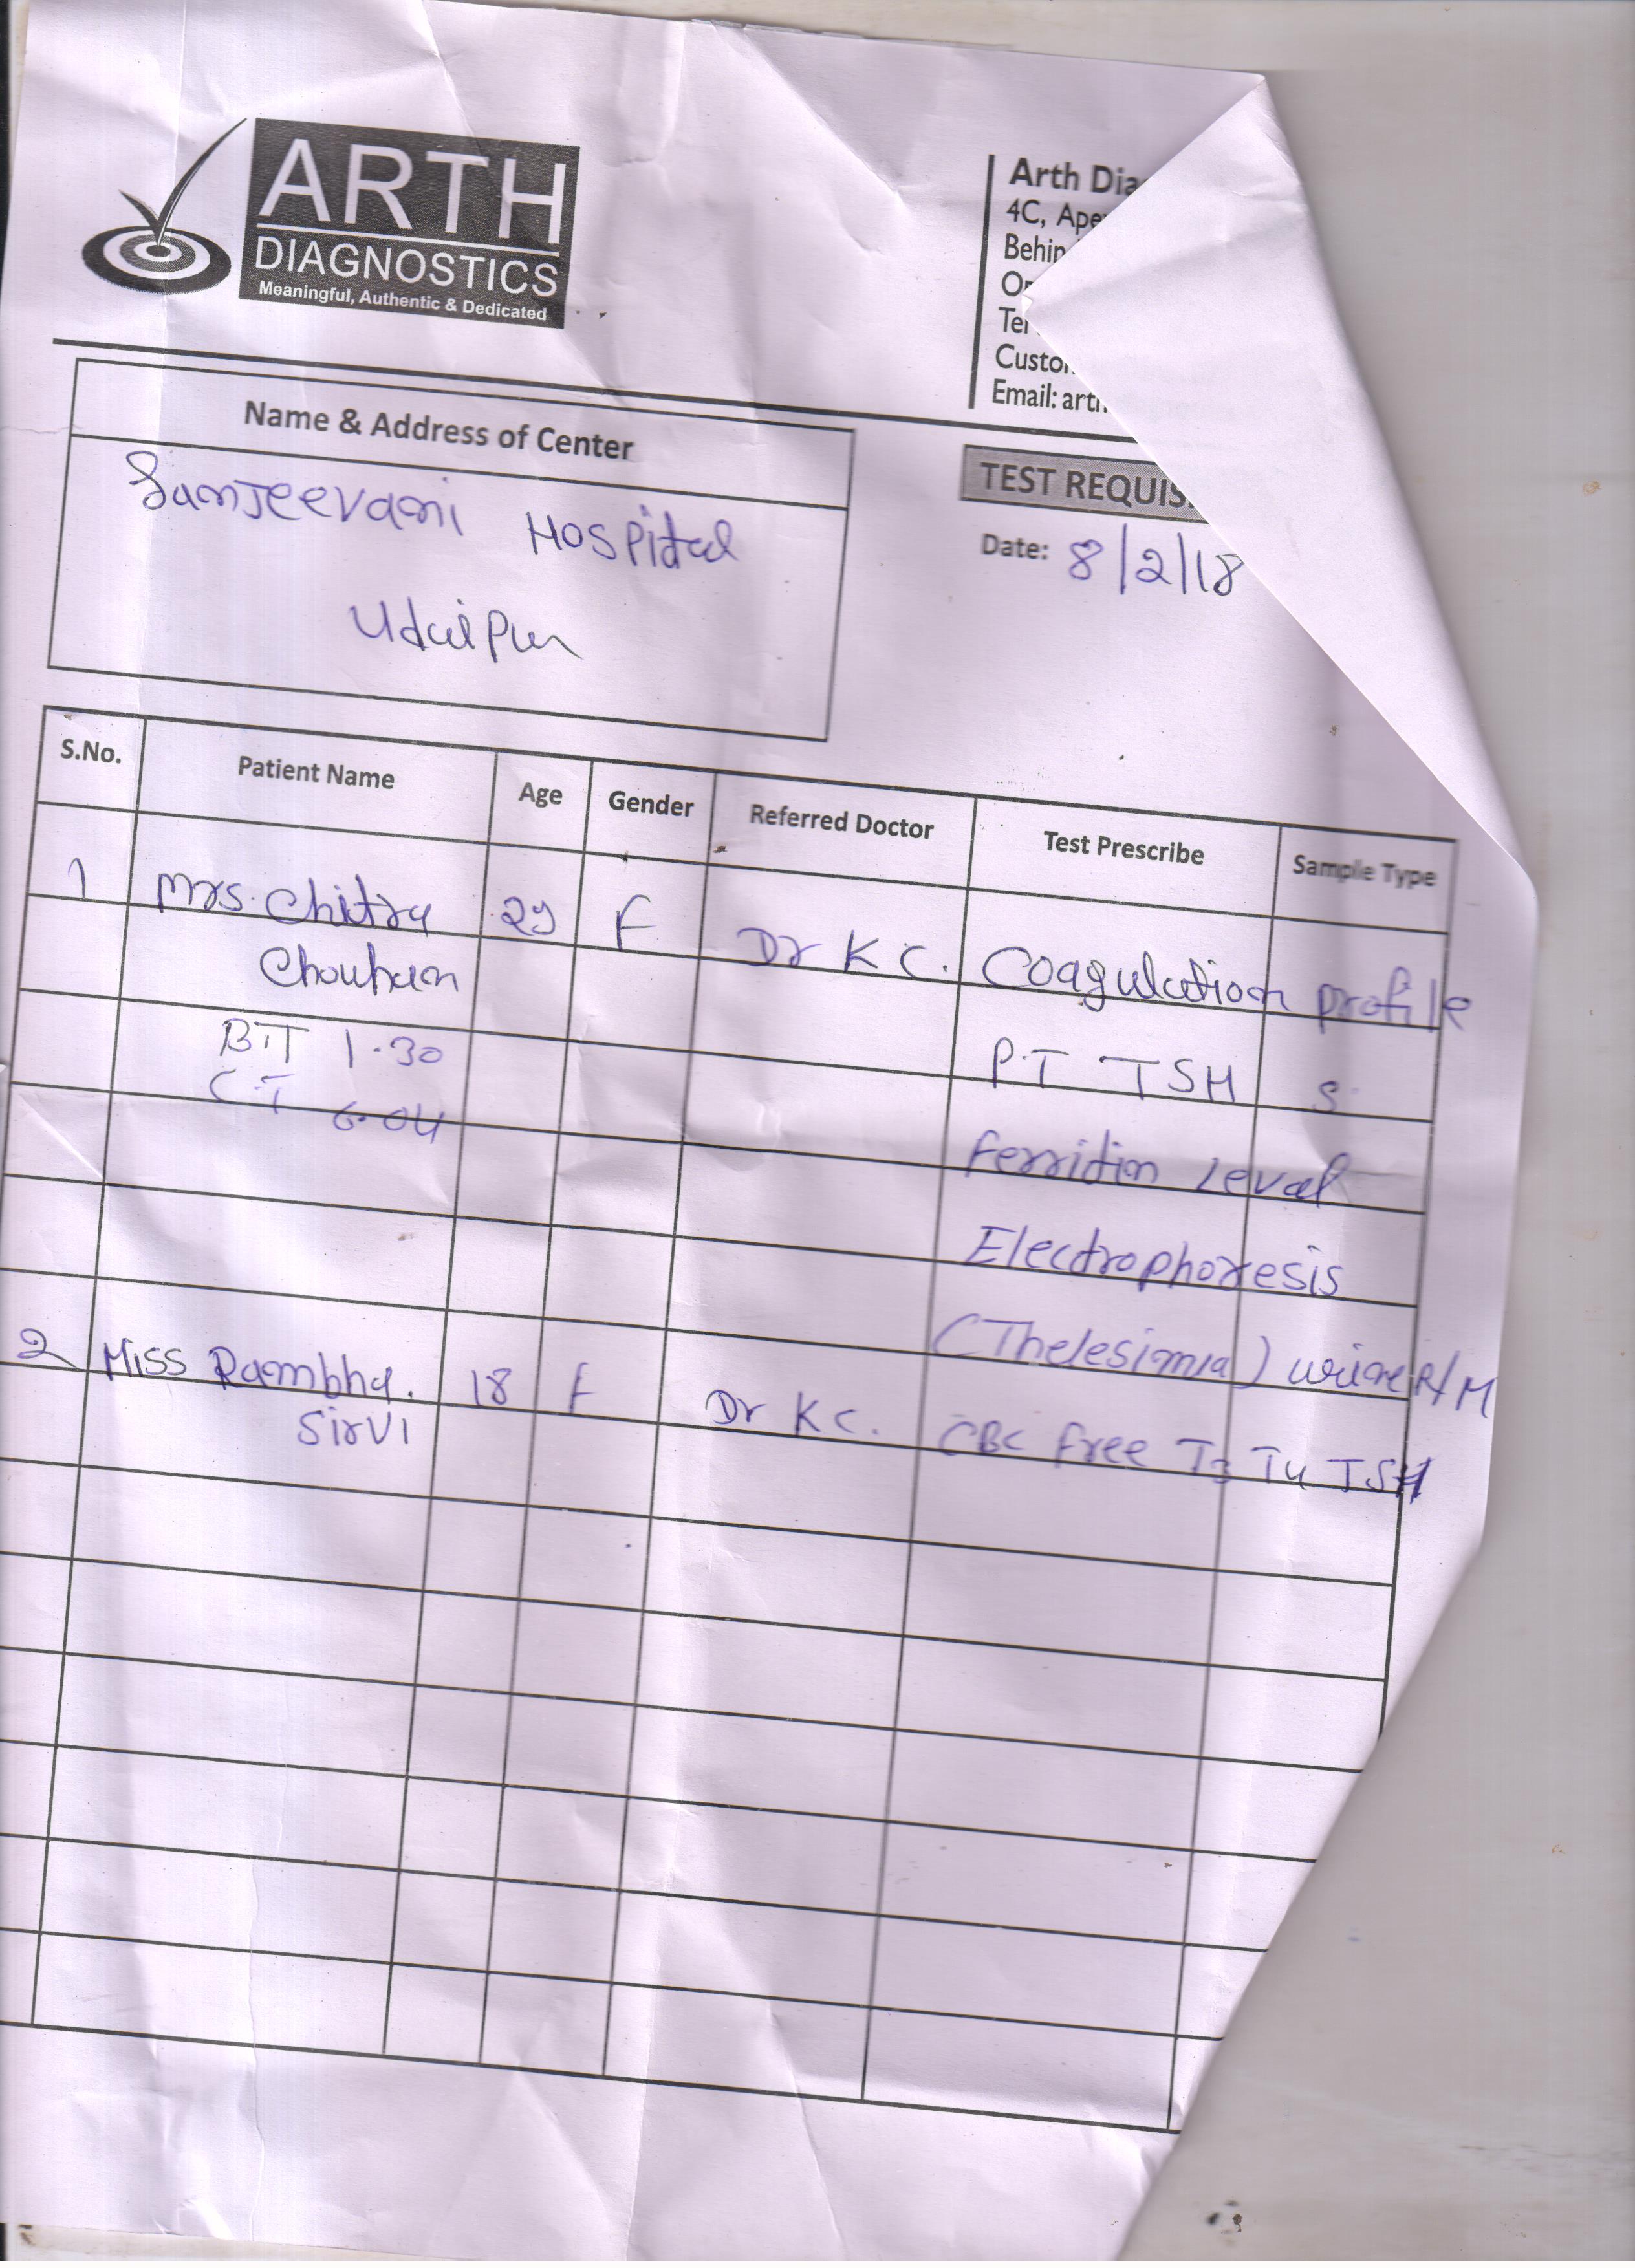 ARTH
DIAGNOSTICS
Meaningful, Authentic & Dedicated
Arth Dia
4C, Ape
Behin
Or
Tel
Custo
Email: arth
Name & Address of Center
SanJeevani Hospital
Udaipur
TEST REQUIS
Date: 8/2/18
S.No. Patient Name Age Gender Referred Doctor Test Prescribe Sample Type
1 Mrs. Chitra 29 F Dr K C. Coagulation profile
Chouhan
B.T 1.30 P.T TSH S.
C.T 6.04
Ferritin Leval
Electrophoresis
(Thelesimia) urine R/M
2 Miss Rambha. 18 F Dr K C. CBC Free T3 T4 TSH
Sirvi